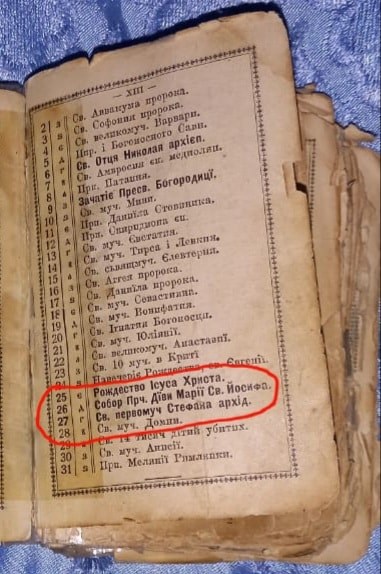 — XIII —
2 Св. Аввакума пророка.
3 Св. Софония пророка.
4 Св. великомуч. Варвари.
5 Прп. і Богоносного Сави.
6 Св. Отця Николая архієп.
7 Св. Амвросия єп. медиолян.
8 Прп. Патапия.
9 Зачатіє Пресв. Богородиці.
10 Св. муч. Мини.
11 Прп. Даниїла Стовпника.
12 Прп. Спиридиона єп.
13 Св. муч. Євстатия.
14 Св. муч. Тирса і Левкия.
15 Св. сьвящмуч. Єлевтерия.
16 Св. Аггея пророка.
17 Св. Даниїла пророка.
18 Св. муч. Севастияна.
19 Св. муч. Вонифатия.
20 Св. Ігнатия Богоносця.
21 Св. муч. Юліянії.
22 Св. великомуч. Анастазії.
23 Св. 10 муч. в Криті
24 Навечеріє Рождества, св. Євгенії.
25 Рождество Ісуса Христа.
26 Собор Прч. Діви Марії Св. Йосифа.
27 Св. первомуч Стефана архід.
28 Св. муч. Домни.
29 Св. 14 тисяч дітий убитих.
30 Св. муч. Анисії.
31 Прп. Меланії Римлянки.